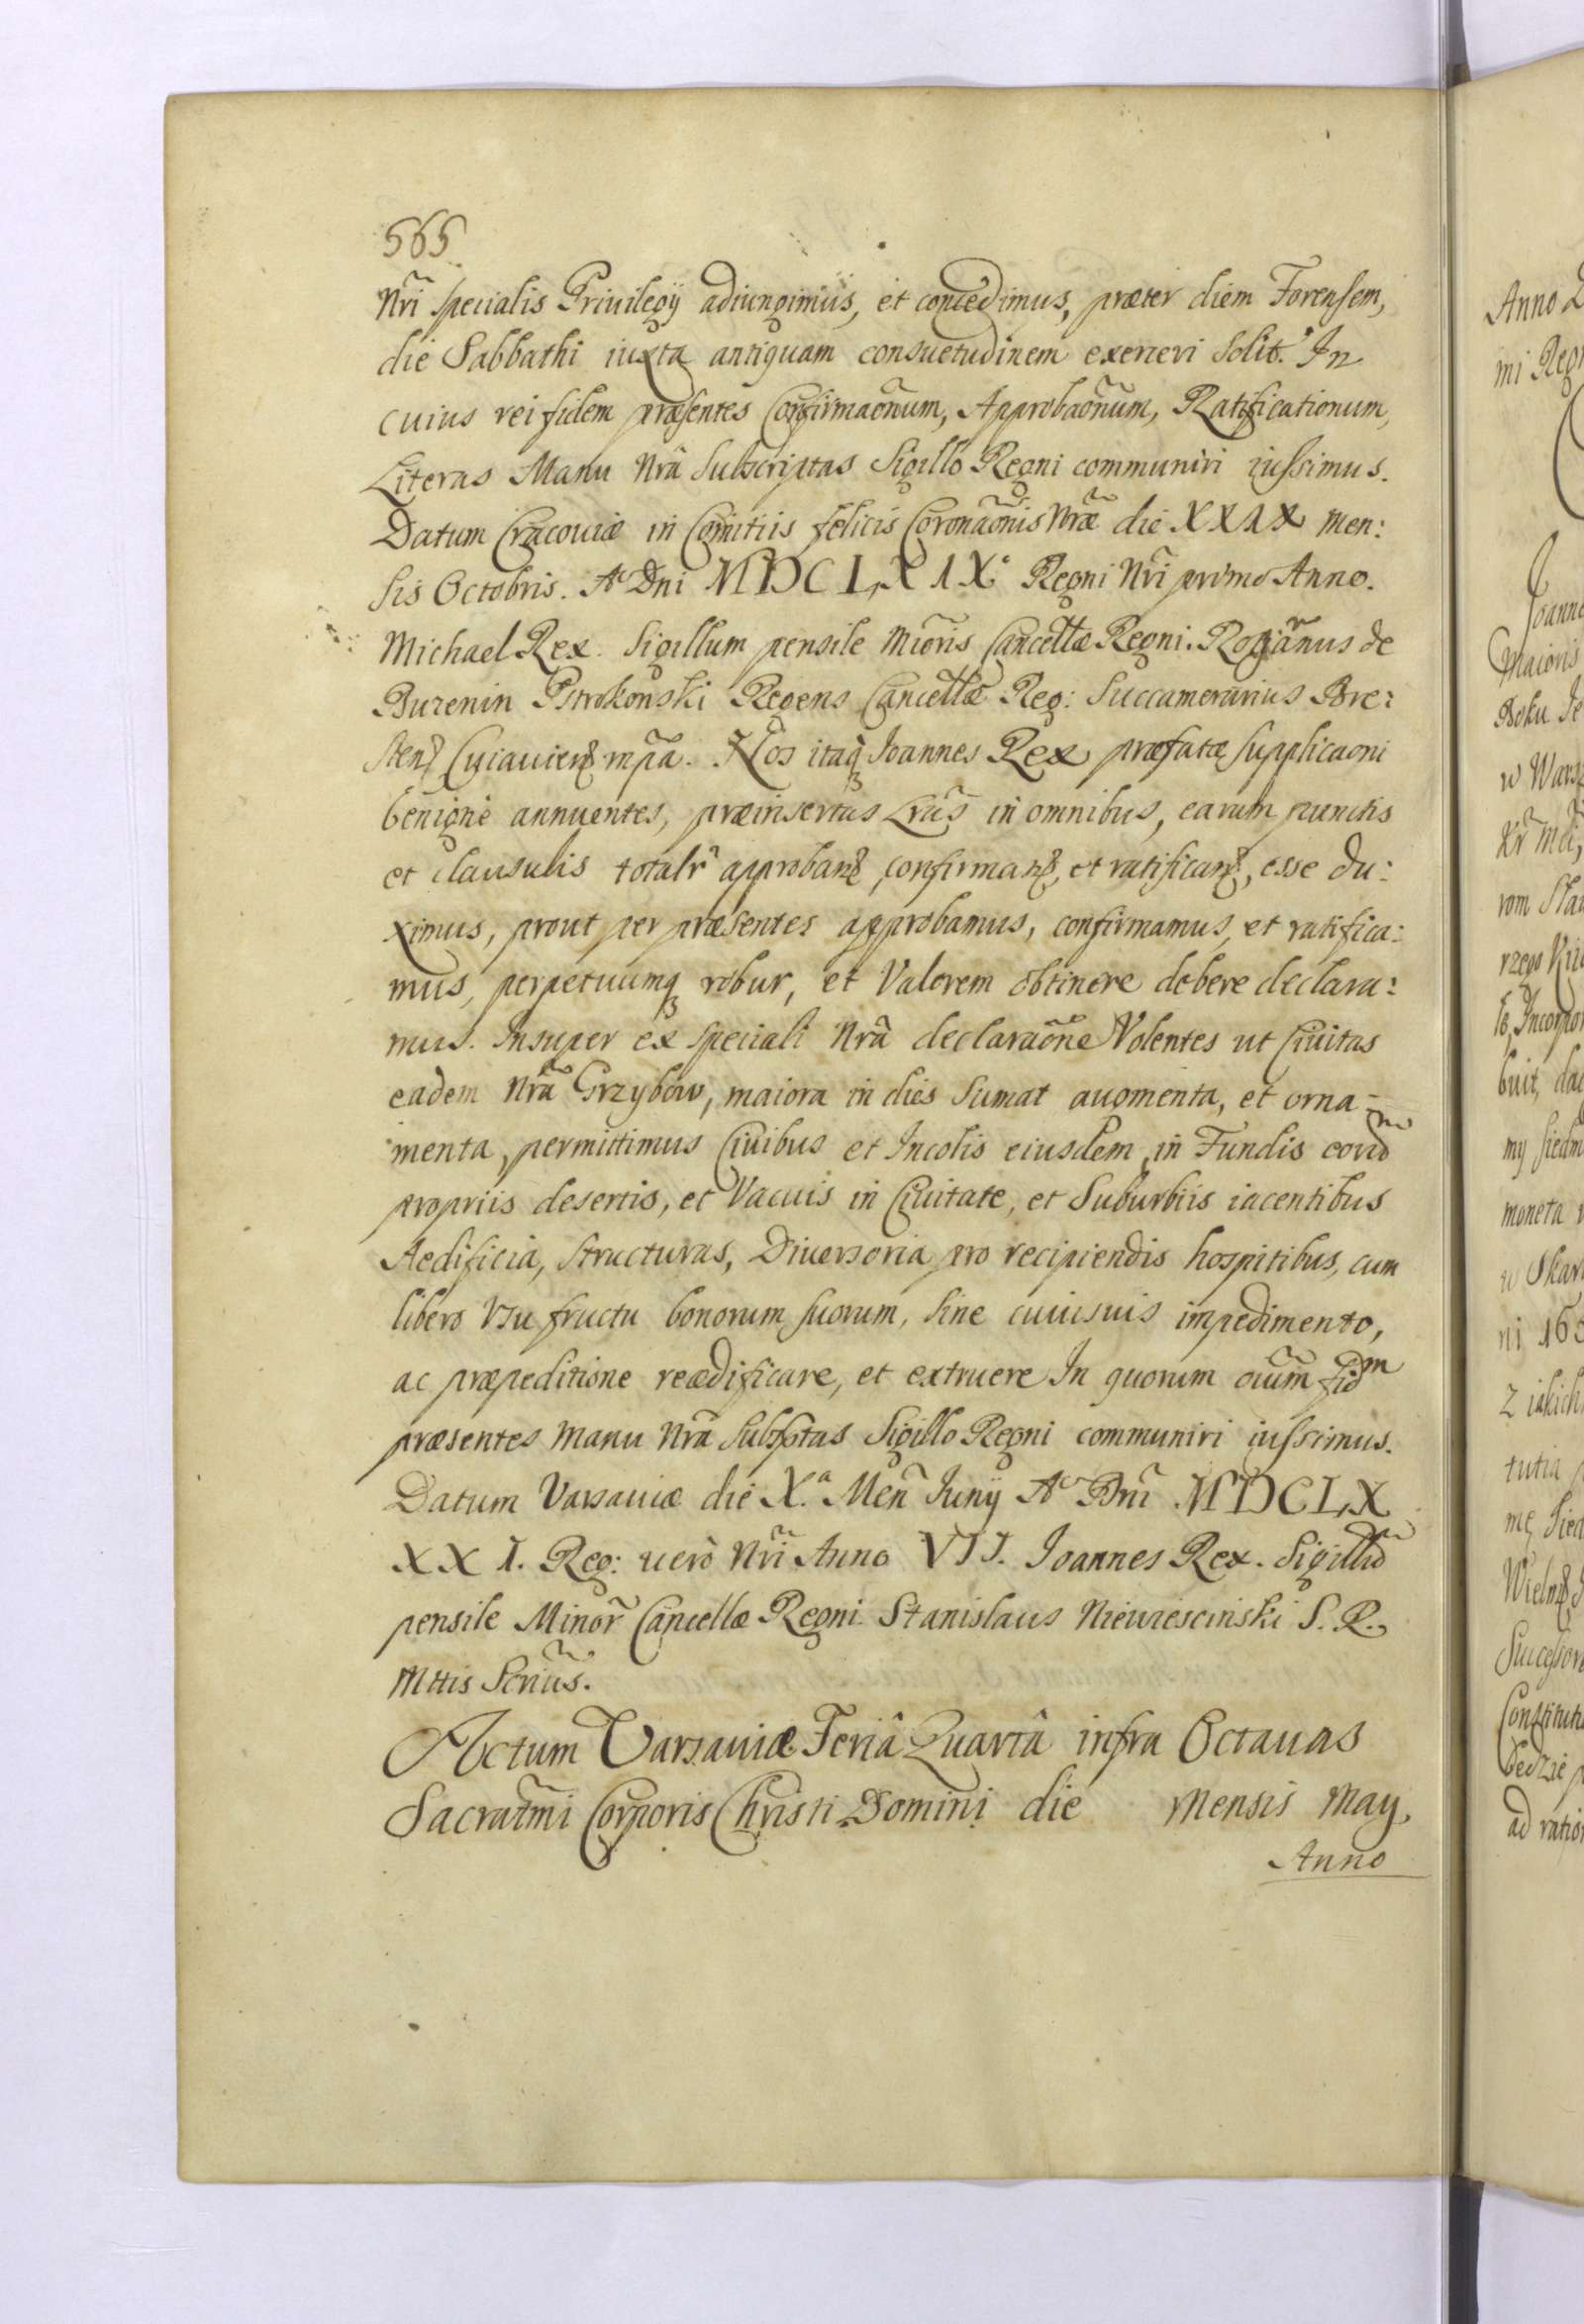 565
Nr̃i specialis Priuilegÿ adiungimus, et concedimus, præter diem Forensem,
die Sabbathi iuxta antiquam consuetudinem exerceri Solit. In
cuius rei fidem præsentes Confirmaõnum, Approbaõnum, Ratificationum,
Literas Manu Nr̃a Subscriptas Sigillo Regni communiri iussimus.
Datum Cracouiæ in Comitiis felicis Coronaõnis Nræ die XXIX Men:
sis Octobris. Ao Dni MDCLXIX° Regni Nr̃i primo Anno.
Michael Rex. Sigillum pensile Mioris Cancellæ Regni. Romanus de
Buzenin Pstrokonski Regens Cancellæ Reg: Succamerarius Bre:
sten Cuiauien mpa. Nos itaq Joannes Rex præfatæ supplicaõni
benignè annuentes, præinsertas Lrãs in omnibus, earum punctis
et clausulis totalr̃ approban, confirman, et ratifican, esse du:
ximus, prout per præsentes approbamus, confirmamus, et ratifica:
mus, perpetuumq robur, et Valorem obtinere debere declara:
mus. Insuper ex speciali Nr̃a declaraõne Volentes ut Ciuitas
eadem Nr̃a Grzybow, maiora in dies Sumat augmenta, et orna-
menta, permittimus Ciuibus et Incolis eiusdem, in Fundis eor̃d
propriis desertis, et Vacuis in Ciuitate, et Suburbiis iacentibus
Aedificia, Structuras, Diuersoria pro recipiendis hospitibus, cum
libero Usu fructu bonorum suorum, Sine cuiusuis impedimento,
ac præpeditione reædificare, et extruere In quorum ouum̃ fidm
præsentes Manu Nr̃a Subsptas Sigillo Regni communiri iussimus.
Datum Varsauiæ die X.a Men Junÿ Ao Dnĩ MDCLX
XXI. Reg: uerò Nr̃i Anno VII. Joannes Rex. Sigillũ
pensile Minor̃ Cancellæ Regni. Stanislaus Niewiescinski S. R.
Mttis Scrius.
Actum Varsauiæ Feriâ Quartâ infra Octauas
Sacratm̃i Corporis Christi Domini die Mensis May.
Anno